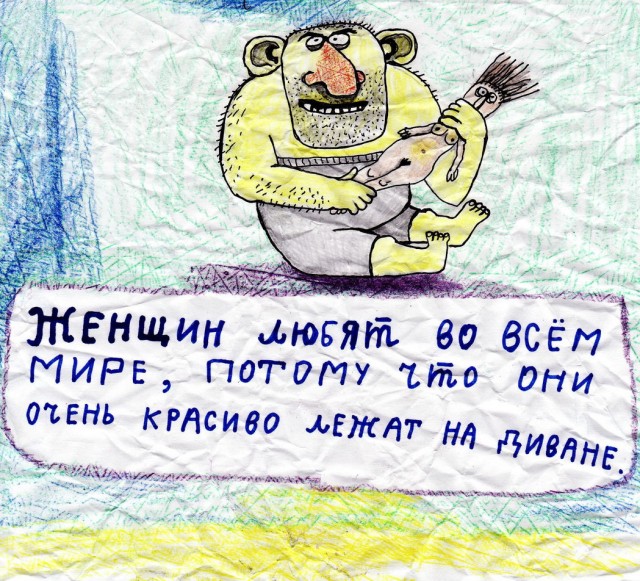 ЖЕНЩИН ЛЮБЯТ ВО ВСЁМ
МИРЕ, ПОТОМУ ЧТО ОНИ
ОЧЕНЬ КРАСИВО ЛЕЖАТ НА ДИВАНЕ.